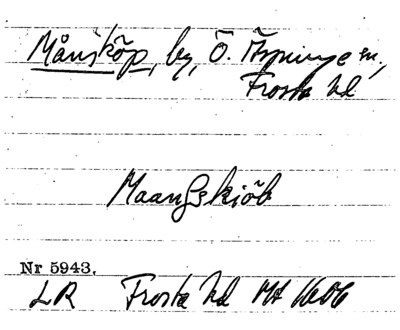 Månsköp, by, Ö. Äspinge sn,
Frosta hd
Maanſskiöb
Nr 5943.
LR Frosta hd Mt 1606